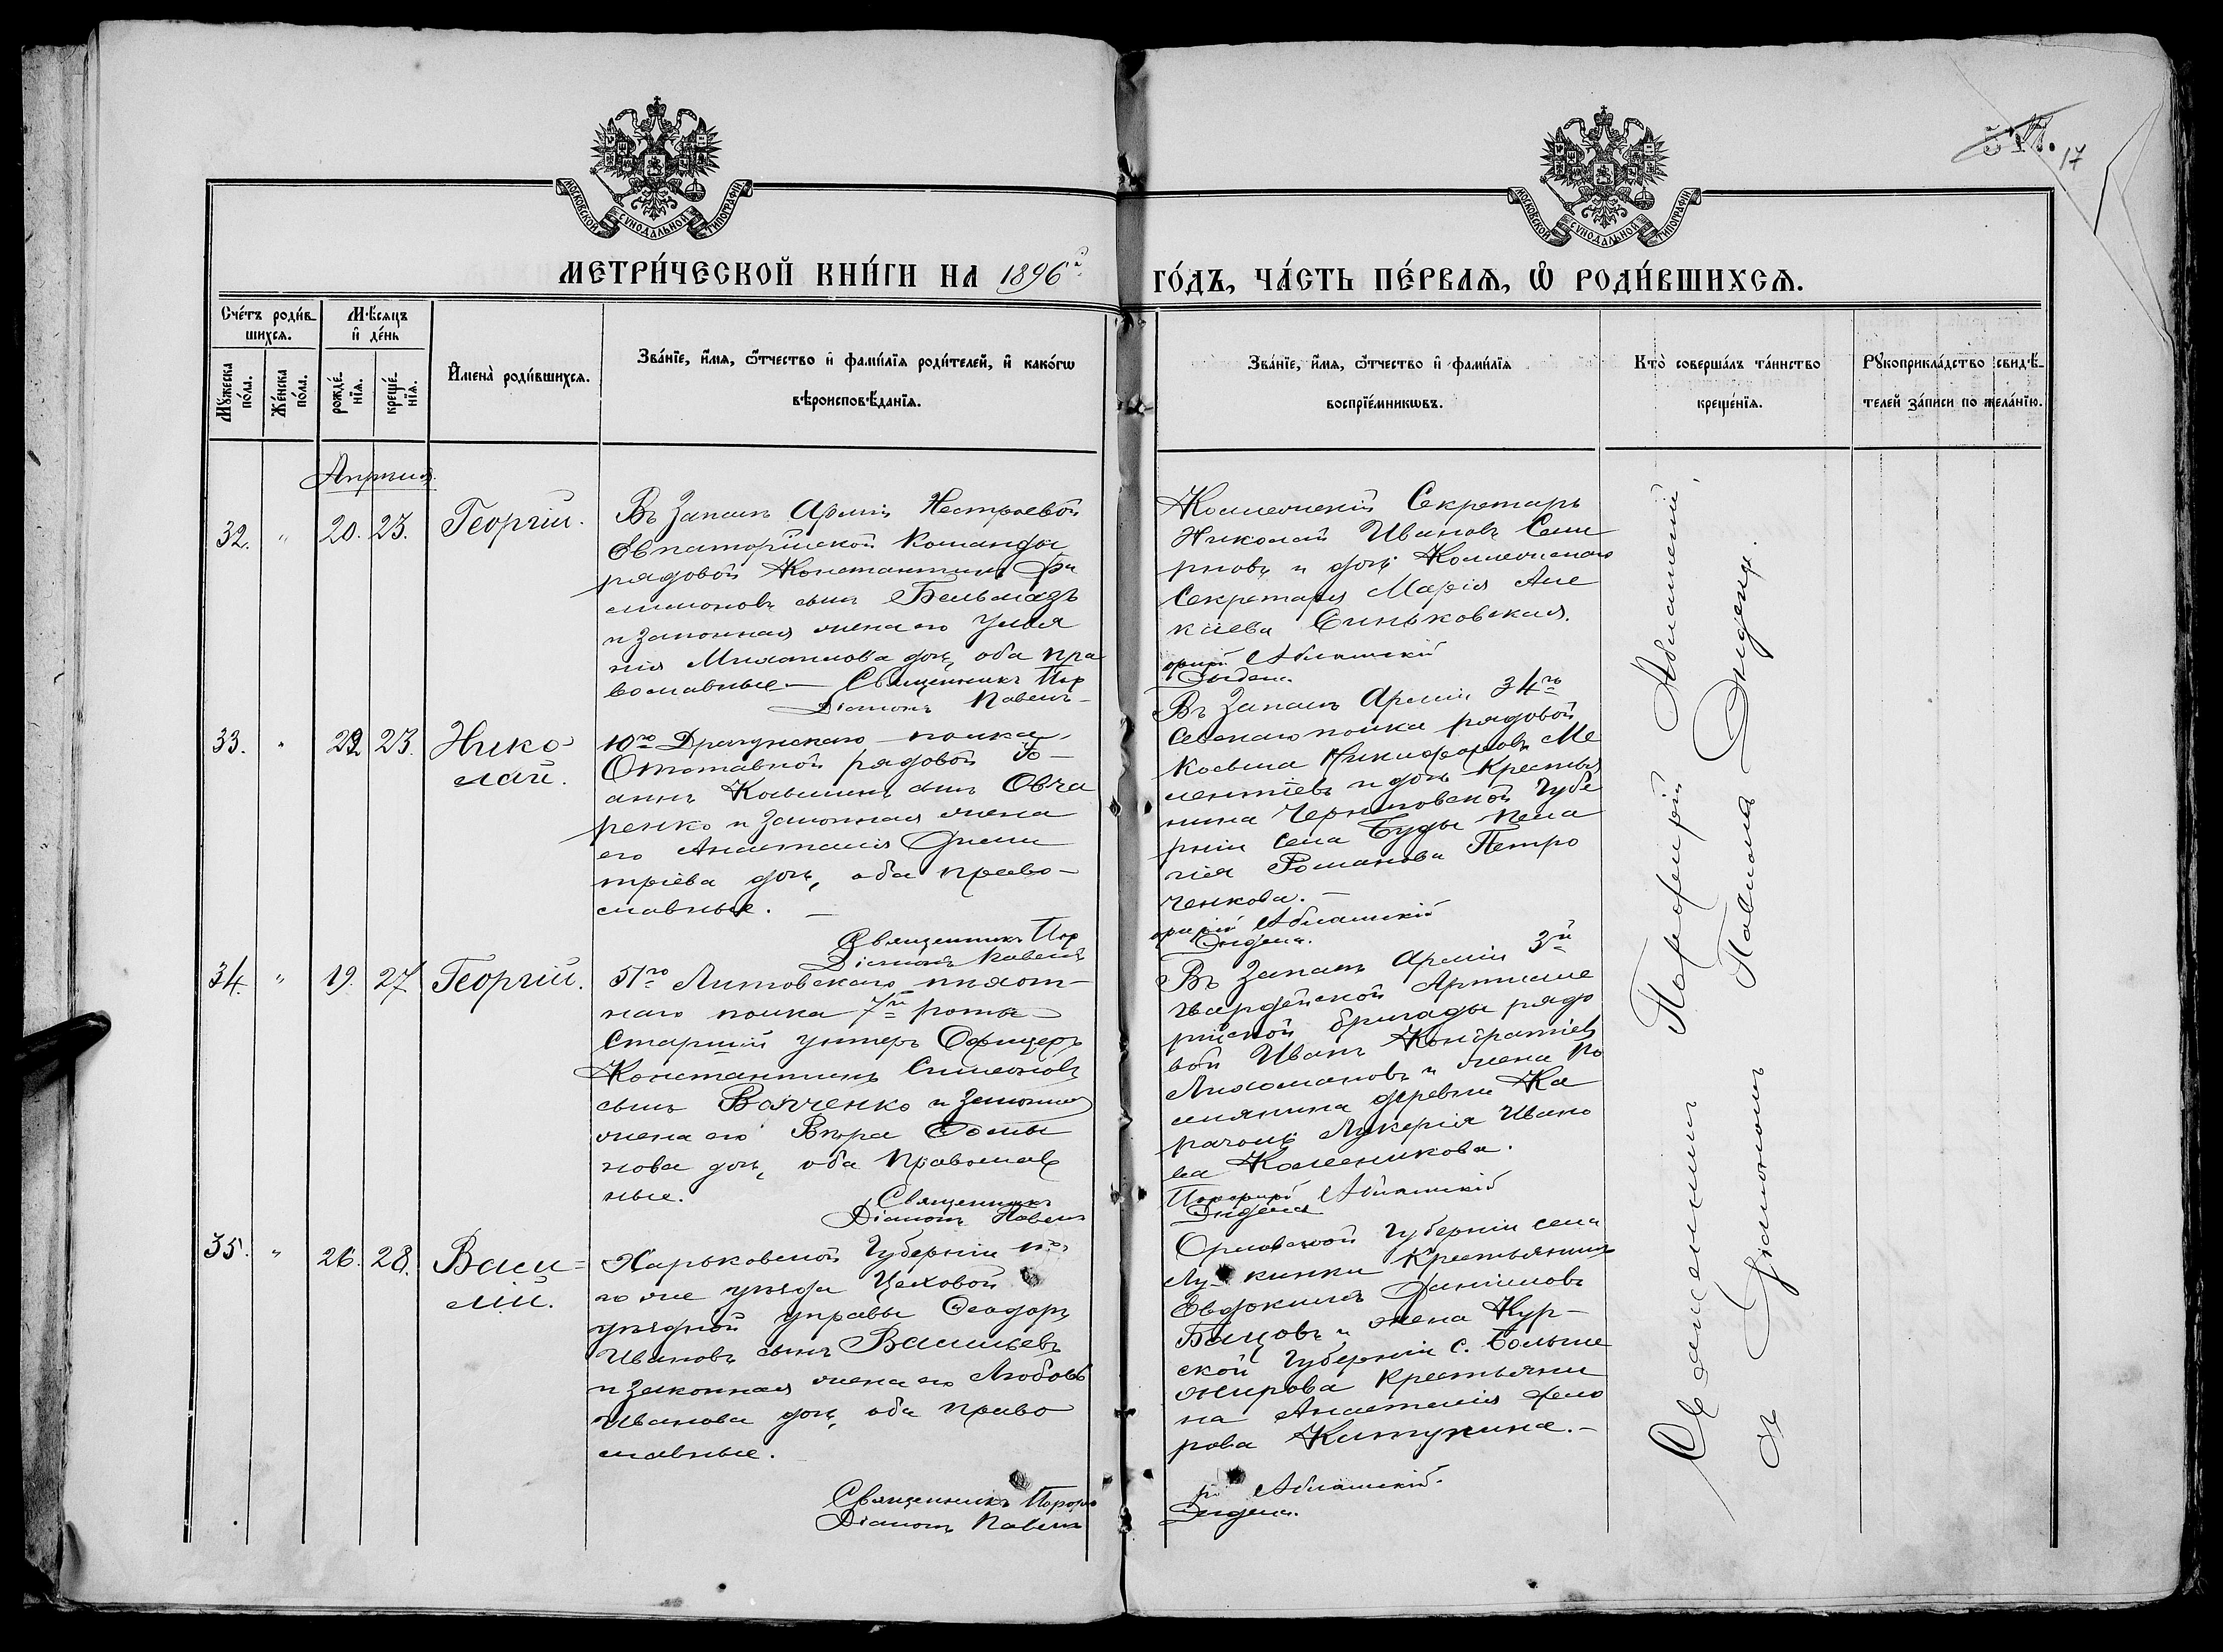 517. 17
МОСКОВСКОЙ СѴНОДАЛЬНОЙ ТИПОГРАФІИ
МОСКОВСКОЙ СѴНОДАЛЬНОЙ ТИПОГРАФІИ
МЕТРИ́ЧЕСКОЙ КНИ́ГИ НА 1896й
ГО́ДЪ, ЧА́СТЬ ПЕ́РВАѦ, Ѡ҆ РОДИ́ВШИХСѦ.
Сче́тъ роди́в-
шихсѧ.
Мꙋ́жеска
по́ла.
Же́нска
по́ла.
Мѣ́сѧцъ
и҆ де́нь
рожде́-
нїѧ.
креще́-
нїѧ.
И҆мена̀ роди́вшихсѧ.
Зва́нїе, и҆́мѧ, ѻ҆́тчество и҆ фами́лїѧ роди́телей, и҆ како́гѡ
вѣроисповѣ́данїѧ.
Зва́нїе, и҆́мѧ, ѻ҆́тчество и҆ фами́лїѧ
воспрїе́мникѡвъ.
Кто̀ соверша́лъ та́инство
креще́нїѧ.
Рꙋкоприкла́дство свидѣ́-
телей за́писи по жела́нїю.
Апрѣля.
32. " 20. 23. Георгій.
Въ запасѣ Арміи Нестроевой
Евпаторійской Команды
рядовой Константинъ Фи
лимоновъ сынъ Бельмазъ
и законная жена его Улья
нія Михаилова дочь, оба пра
вославные.— Священникъ Пор
Діаконъ Павелъ
Коллежскій Секретарь
Николай Ивановъ Сели
рновъ и дочь Коллежскаго
Секретаря Марія Але
ксіева Синьковская.
фирій Аблашскій
Эндека.
33. " 22 23. Нико-
лай.
10го Драгунскаго полка,
Отставной рядовой Іо-
аннъ Косьминъ сынъ Овча
ренко и законная жена
его Анастасія Дими
тріева дочь, оба право-
славные. —
Священникъ Пор
Діаконъ Павелъ
Въ запасѣ Арміи 34го
Севскаго полка рядовой
Косьма Никифоровъ Ме
лентіевъ и дочь Крестья
нина Черниговской Губе
рніи села Буды Пела
гія Романова Петро
ченкова.
фирій Аблашскій
Эндека.
34. " 19. 27 Георгій.
51го Литовскаго пѣхот-
наго полка 7й роты
Старшій унтеръ Офицеръ
Константинъ Симеоновъ
сынъ Вовченко и законная
жена его Вѣра Ѳоми
нова дочь, оба Православ
ные.
Священникъ
Діаконъ Павелъ
Въ запасѣ Арміи 3й
гвардейской Артилле
рійской бригады рядо
вой Иванъ Кондратіевъ
Лихомановъ и жена По
селянина деревни Ка
рачоць Лукерія Ивано
ва Колесникова.
Порфирій Аблашскій
Эндека
35. " 26. 28. Васи-
лій.
Харьковской Губерніи и
го же уѣзда Цеховой
уѣздной управы Ѳеодоръ
Ивановъ сынъ Васильевъ
и законная жена его Любовь
Иванова дочь, оба право
славные.
Священникъ Порфи
Діаконъ Павелъ
Орловской Губерніи села
Лу кинки Крестьянинъ
Евдокимъ Даниловъ
Бацовъ и жена Кур-
ской Губерніи с. Больше
жирова Крестьяни
на Анастасія Ѳедо
рова Китукина.—
рі Аблашскій.
Эндека.
Священникъ Порфирій Аблашскій
съ Діакономъ Павломъ Эндека.